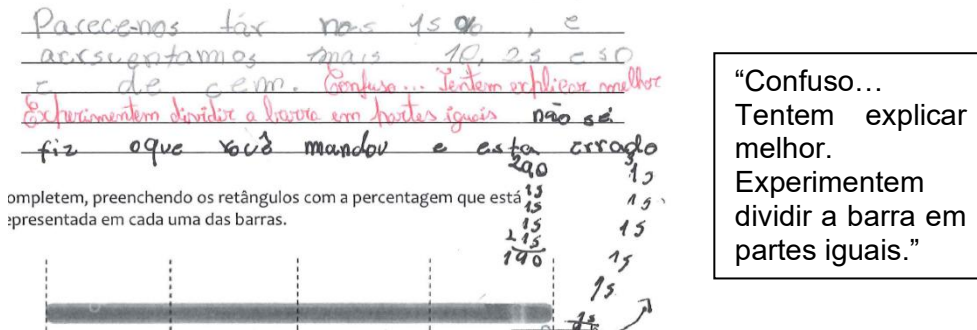 Parece-nos tár nos 15 % , e
acrscentamos mais 10, 25 e 50
E de cem. Confuso... Tentem explicar melhor
Experimentem dividir a barra em partes iguais não sé
fiz oque você mandou e esta errado
ompletem, preenchendo os retângulos com a percentagem que está
epresentada em cada uma das barras.
15
15
15
15
190
15
15
15
15
15
“Confuso…
Tentem explicar
melhor.
Experimentem
dividir a barra em
partes iguais.”